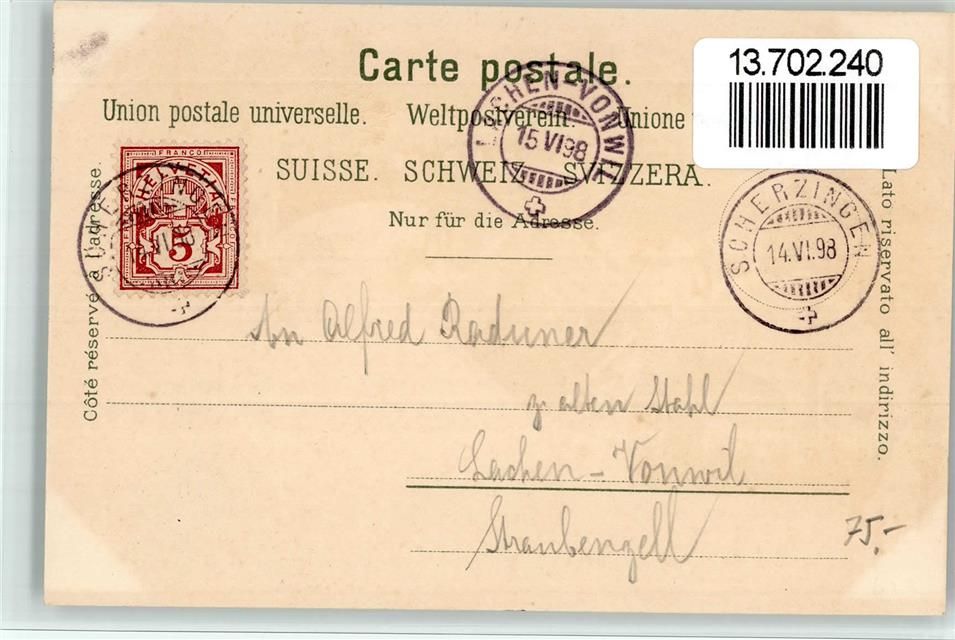 Carte postale.
13.702.240
Union postale universelle. Weltpostverein. Unione
SUISSE. SCHWEIZ. SVIZZERA.
Nur für die Adresse.
LACHEN-VONWIL
15 VI 98
SCHERZINGEN
14.VI.98
FRANCO
HELVETIA
5
Côté réservé à l'adresse.
Lato riservato all' indirizzo.
An Alfred Raduner
z. alten Stahl
Lachen - Vonwil
Straubenzell
75.-